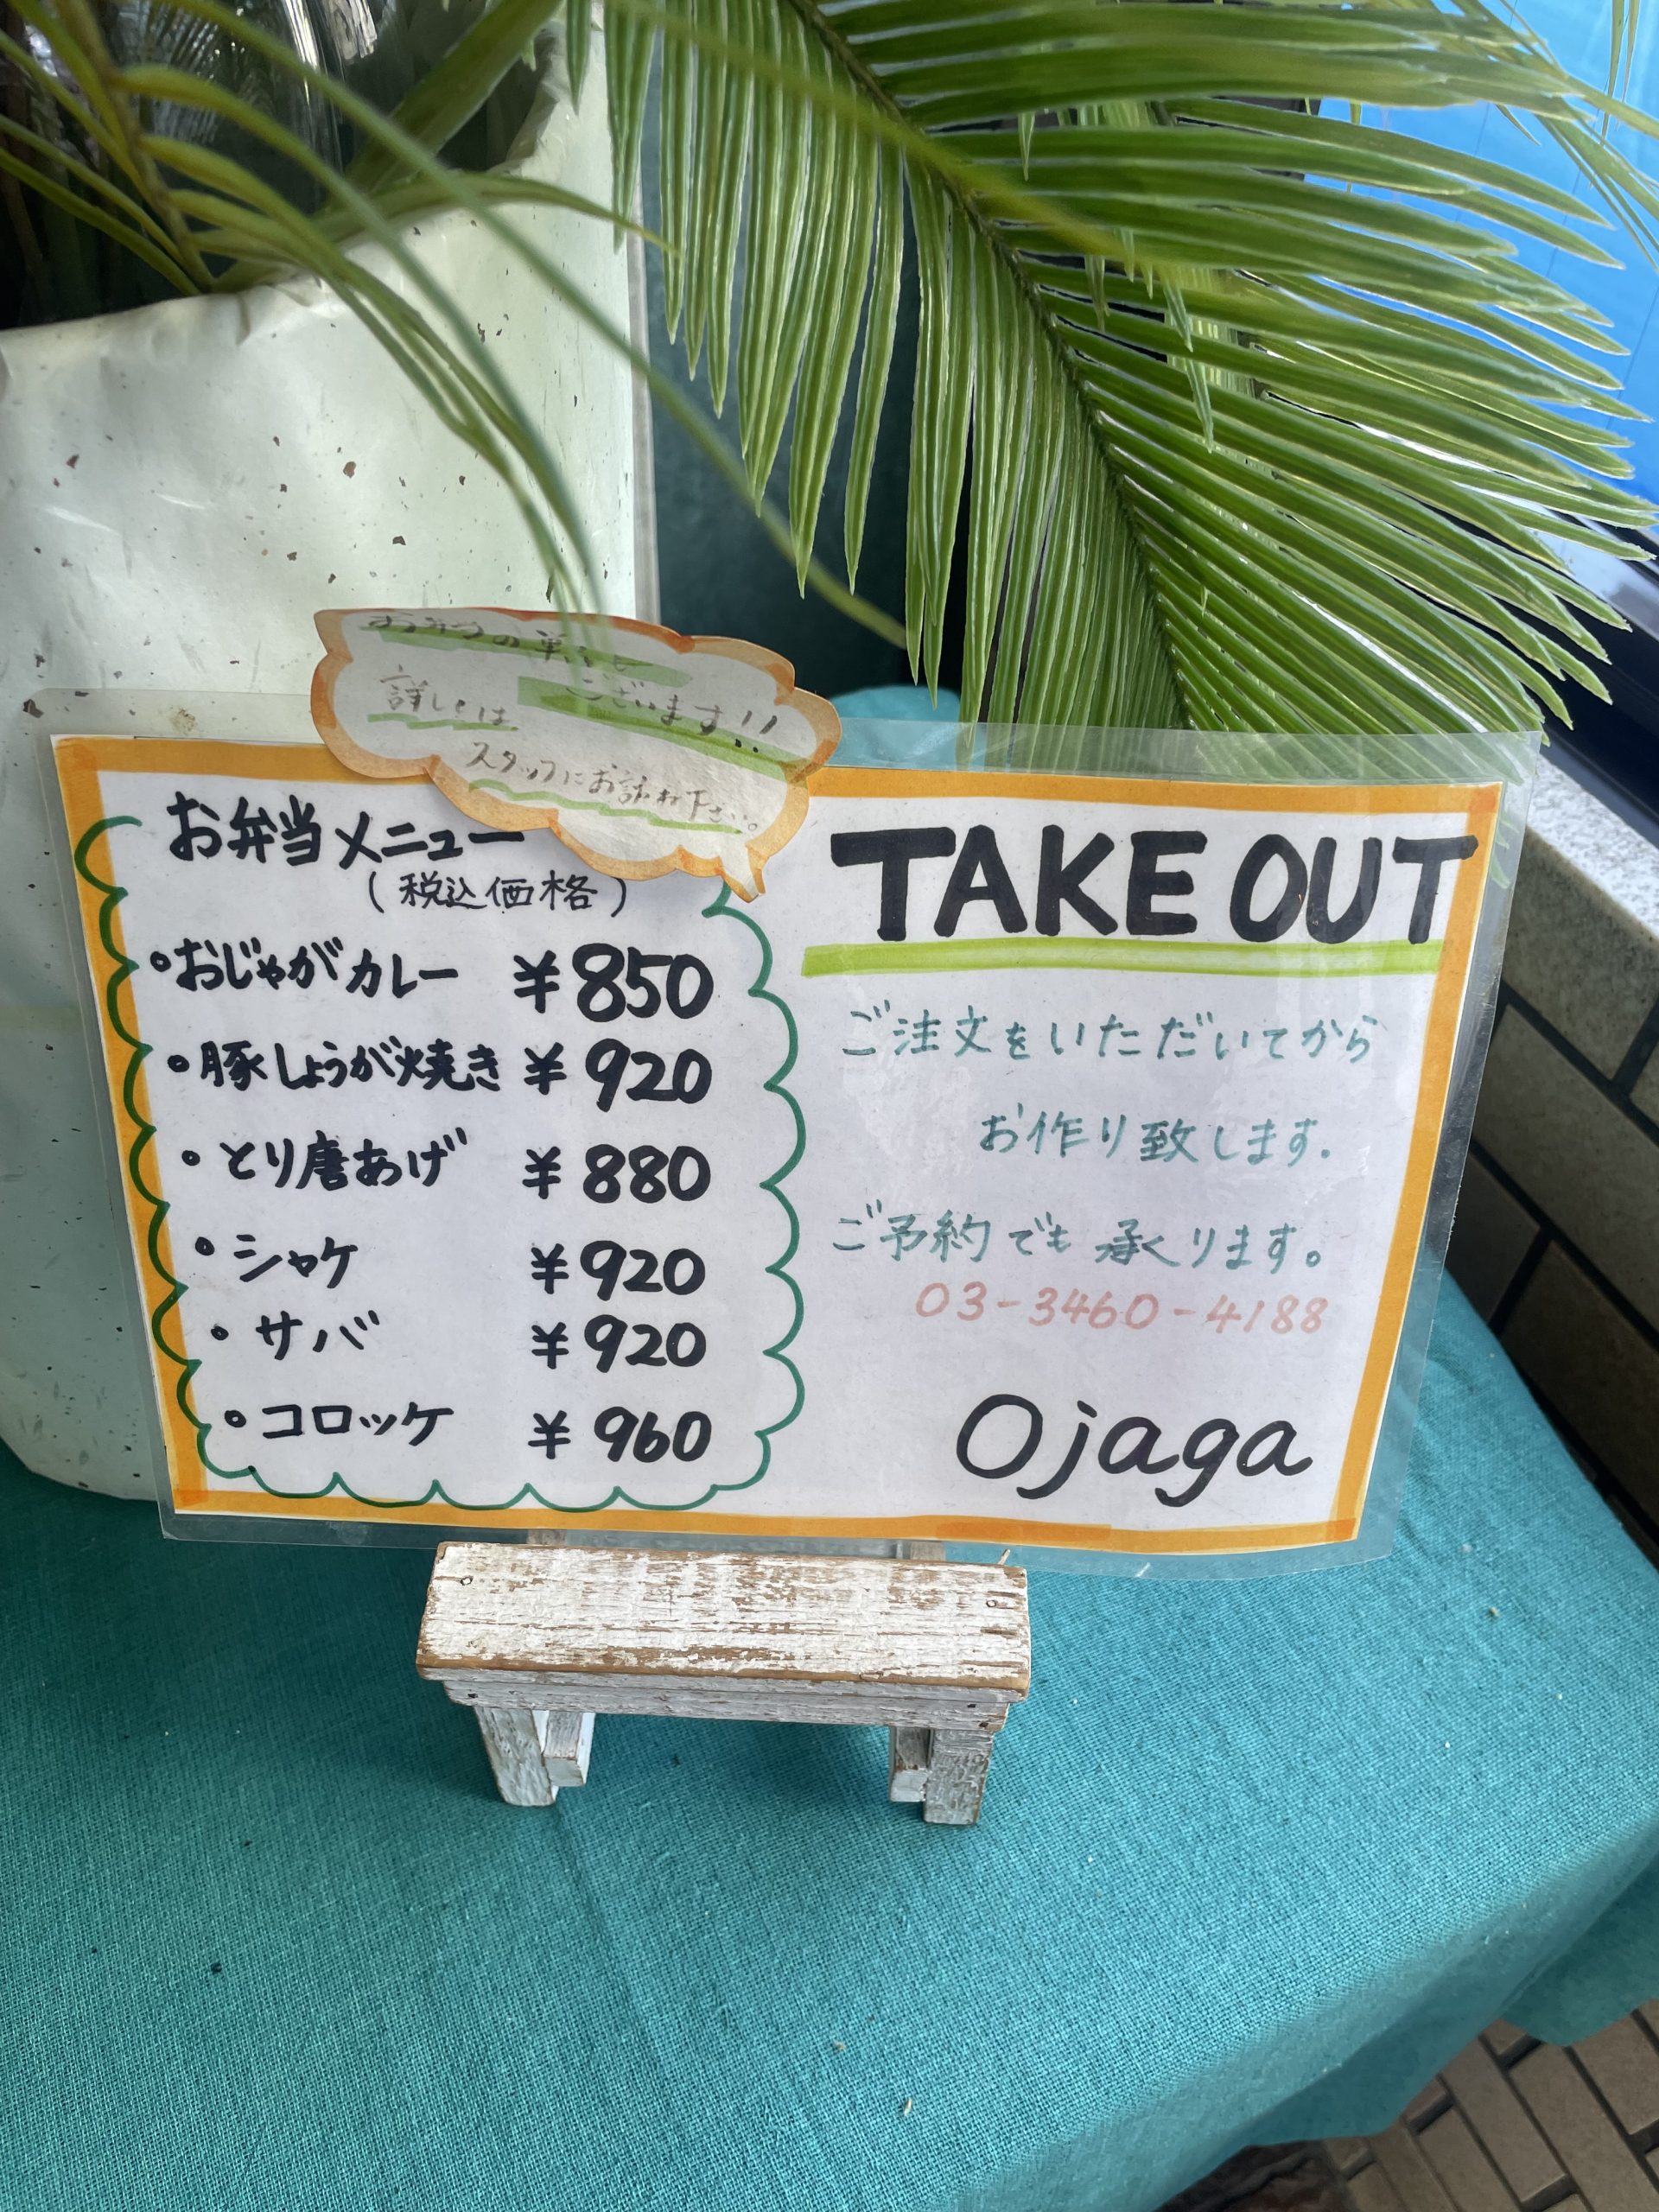 お弁当の
ございます!!
詳しくは
スタッフにお訊ね下さい。
お弁当メニュー
(税込価格)
・おじゃがカレー ¥850
・豚しょうが焼き ¥920
・とり唐あげ ¥880
・シャケ ¥920
・サバ ¥920
・コロッケ ¥960
TAKE OUT
ご注文をいただいてから
お作り致します.
ご予約でも承くります。
03-3460-4188
Ojaga